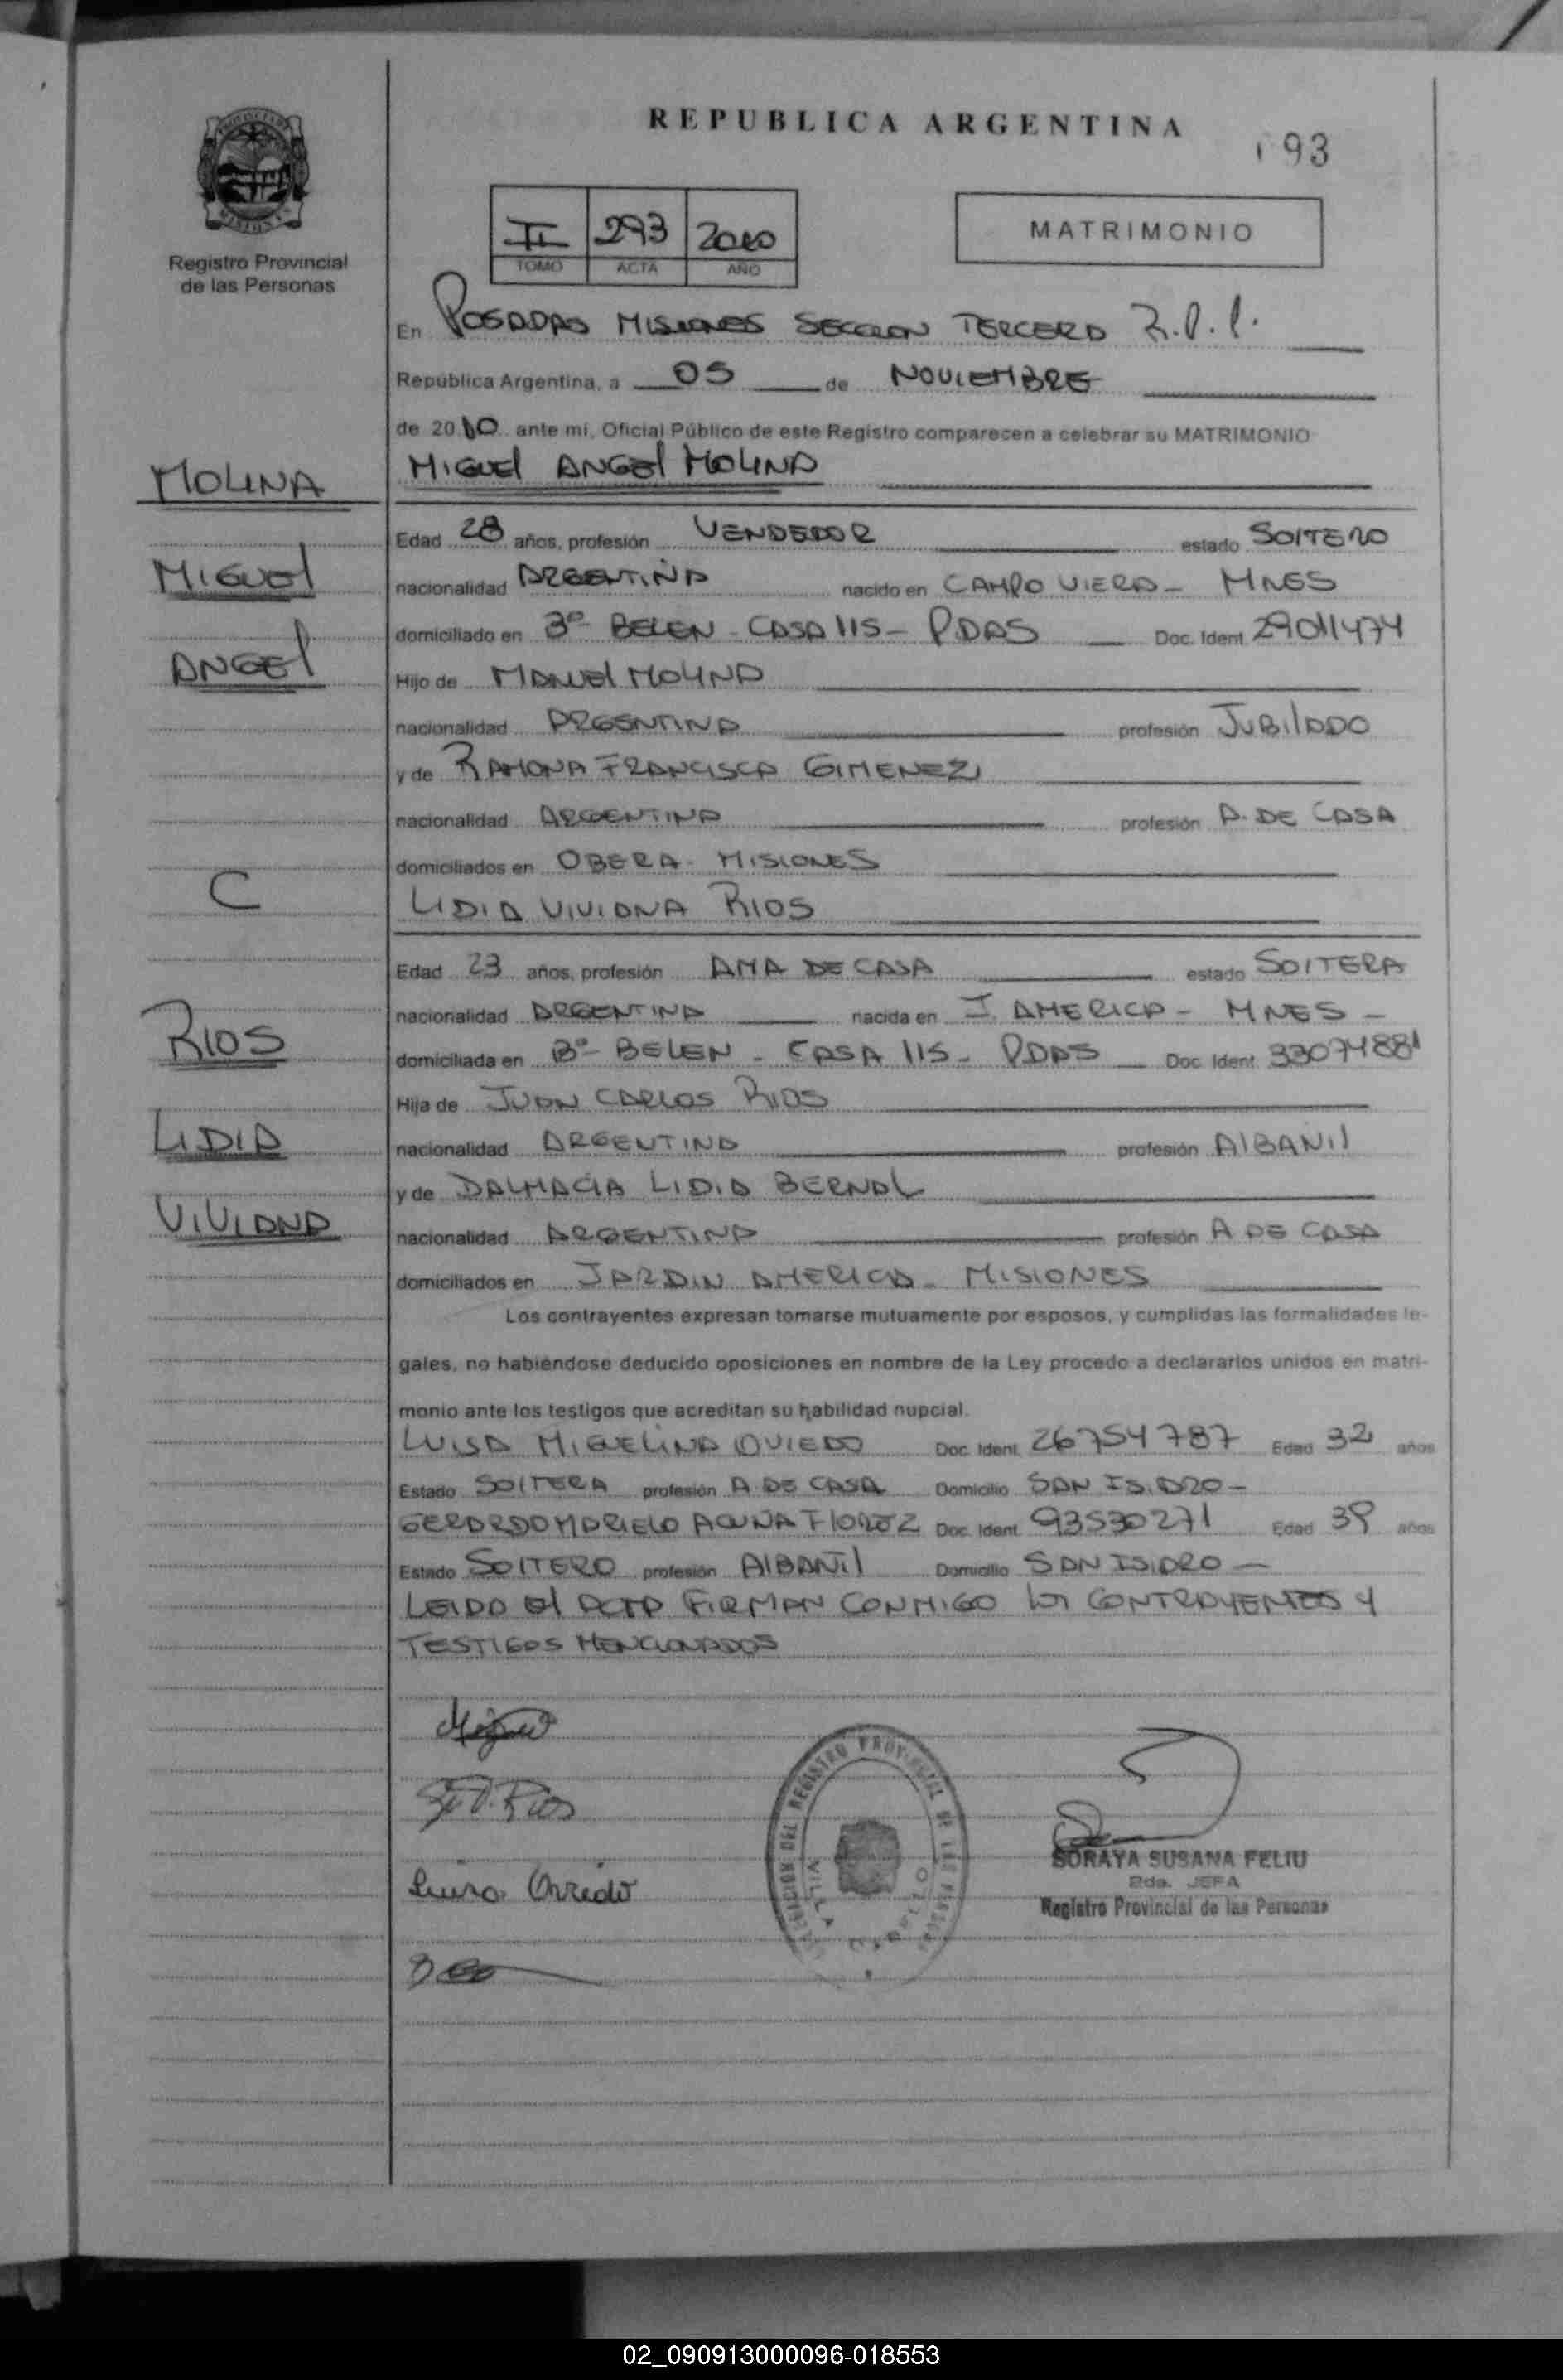 REPUBLICA ARGENTINA
193
II 293 2010
TOMO ACTA AÑO
MATRIMONIO
Registro Provincial
de las Personas
En POSADAS MISIONES SECCION TERCERA R.P.P.
República Argentina, a 05 de NOVIEMBRE
de 2010 ante mi, Oficial Público de este Registro comparecen a celebrar su MATRIMONIO
MOLINA
MIGUEL ANGEL MOLINA
Edad 28 años, profesión VENDEDOR estado SOLTERO
MIGUEL
nacionalidad ARGENTINA nacido en CAMPO VIERA - MNES
domiciliado en Bº BELEN - CASA 115 - PDAS Doc. Ident. 29011474
ANGEL
Hijo de MANUEL MOLINA
nacionalidad ARGENTINA profesión JUBILADO
y de RAMONA FRANCISCA GIMENEZ
nacionalidad ARGENTINA profesión A. DE CASA
domiciliados en OBERA - MISIONES
C
LIDIA VIVIANA RIOS
Edad 23 años, profesión AMA DE CASA estado SOLTERA
nacionalidad ARGENTINA nacida en J. AMERICA - MNES -
RIOS
domiciliada en Bº BELEN - CASA 115 - PDAS Doc. Ident. 33074881
Hija de JUAN CARLOS RIOS
LIDIA
nacionalidad ARGENTINA profesión ALBAÑIL
y de DALMACIA LIDIA BERNAL
VIVIANA
nacionalidad ARGENTINA profesión A DE CASA
domiciliados en JARDIN AMERICA - MISIONES
Los contrayentes expresan tomarse mutuamente por esposos, y cumplidas las formalidades le-
gales, no habiéndose deducido oposiciones en nombre de la Ley procedo a declararlos unidos en matri-
monio ante los testigos que acreditan su habilidad nupcial.
LUISA MIGUELINA OVIEDO Doc. Ident. 26754787 Edad 32 años
Estado SOLTERA profesión A. DE CASA Domicilio SAN ISIDRO -
GERARDO MARIELO ACUNA Doc. Ident. 93530271 Edad 39 años
Estado SOLTERO profesión ALBAÑIL Domicilio SAN ISIDRO -
LEIDA EL ACTA FIRMAN CONMIGO LOS CONTRAYENTES Y
TESTIGOS MENCIONADOS
Miguel
Rios
Luisa Oviedo
DEL REGISTRO PROVINCIAL DE LAS PERSONAS
VILLA
SORAYA SUSANA FELIU
2da. JEFA
Registro Provincial de las Personas
02_090913000096-018553